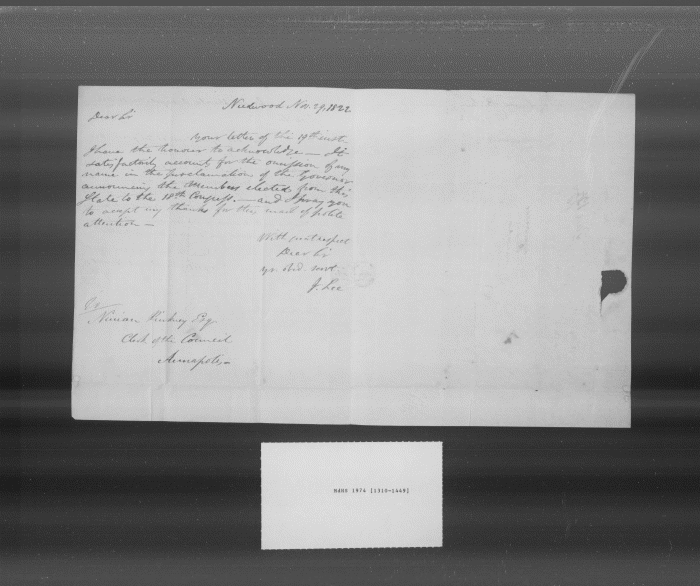 Needwood Nov. 29, 1822
Dear Sir
Your letter of the 19th inst.
I have the honour to acknowledge — It
satisfactorily accounts for the omission of my
name in the proclamation of the Governor
announcing the Members elected from this
State to the 18th Congress. — and I pray you
to accept my thanks for this mark of polite
attention —
With great respect
Dear Sir
yr. obd. servt
J. Lee
Ninian Pinkney Esq
Clerk of the Council
Annapolis
MdHR 1974 [1310-1449]